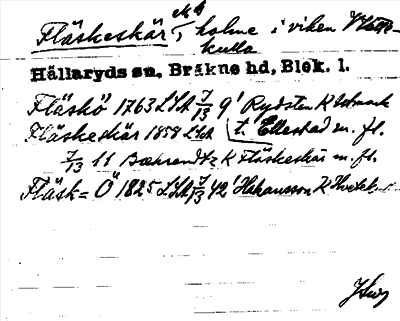 Fläskeskär, holme i viken Matte-
kulla
Hällaryds sn, Bräkne hd, Blek. l.
Fläskö 1763 LSA 7/13 9' Rydsten K
Fläskeskär 1858 LSA t. Ellestad m. fl.
7/13 11 K Fläskeskär m. fl.
Fläsk=Ö 1825 LSA 7/13 42' Håkansson K